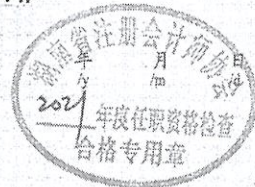 湖南省注册会计师协会
年 月 日
/y /m /d
2021年度任职资格检查
合格专用章